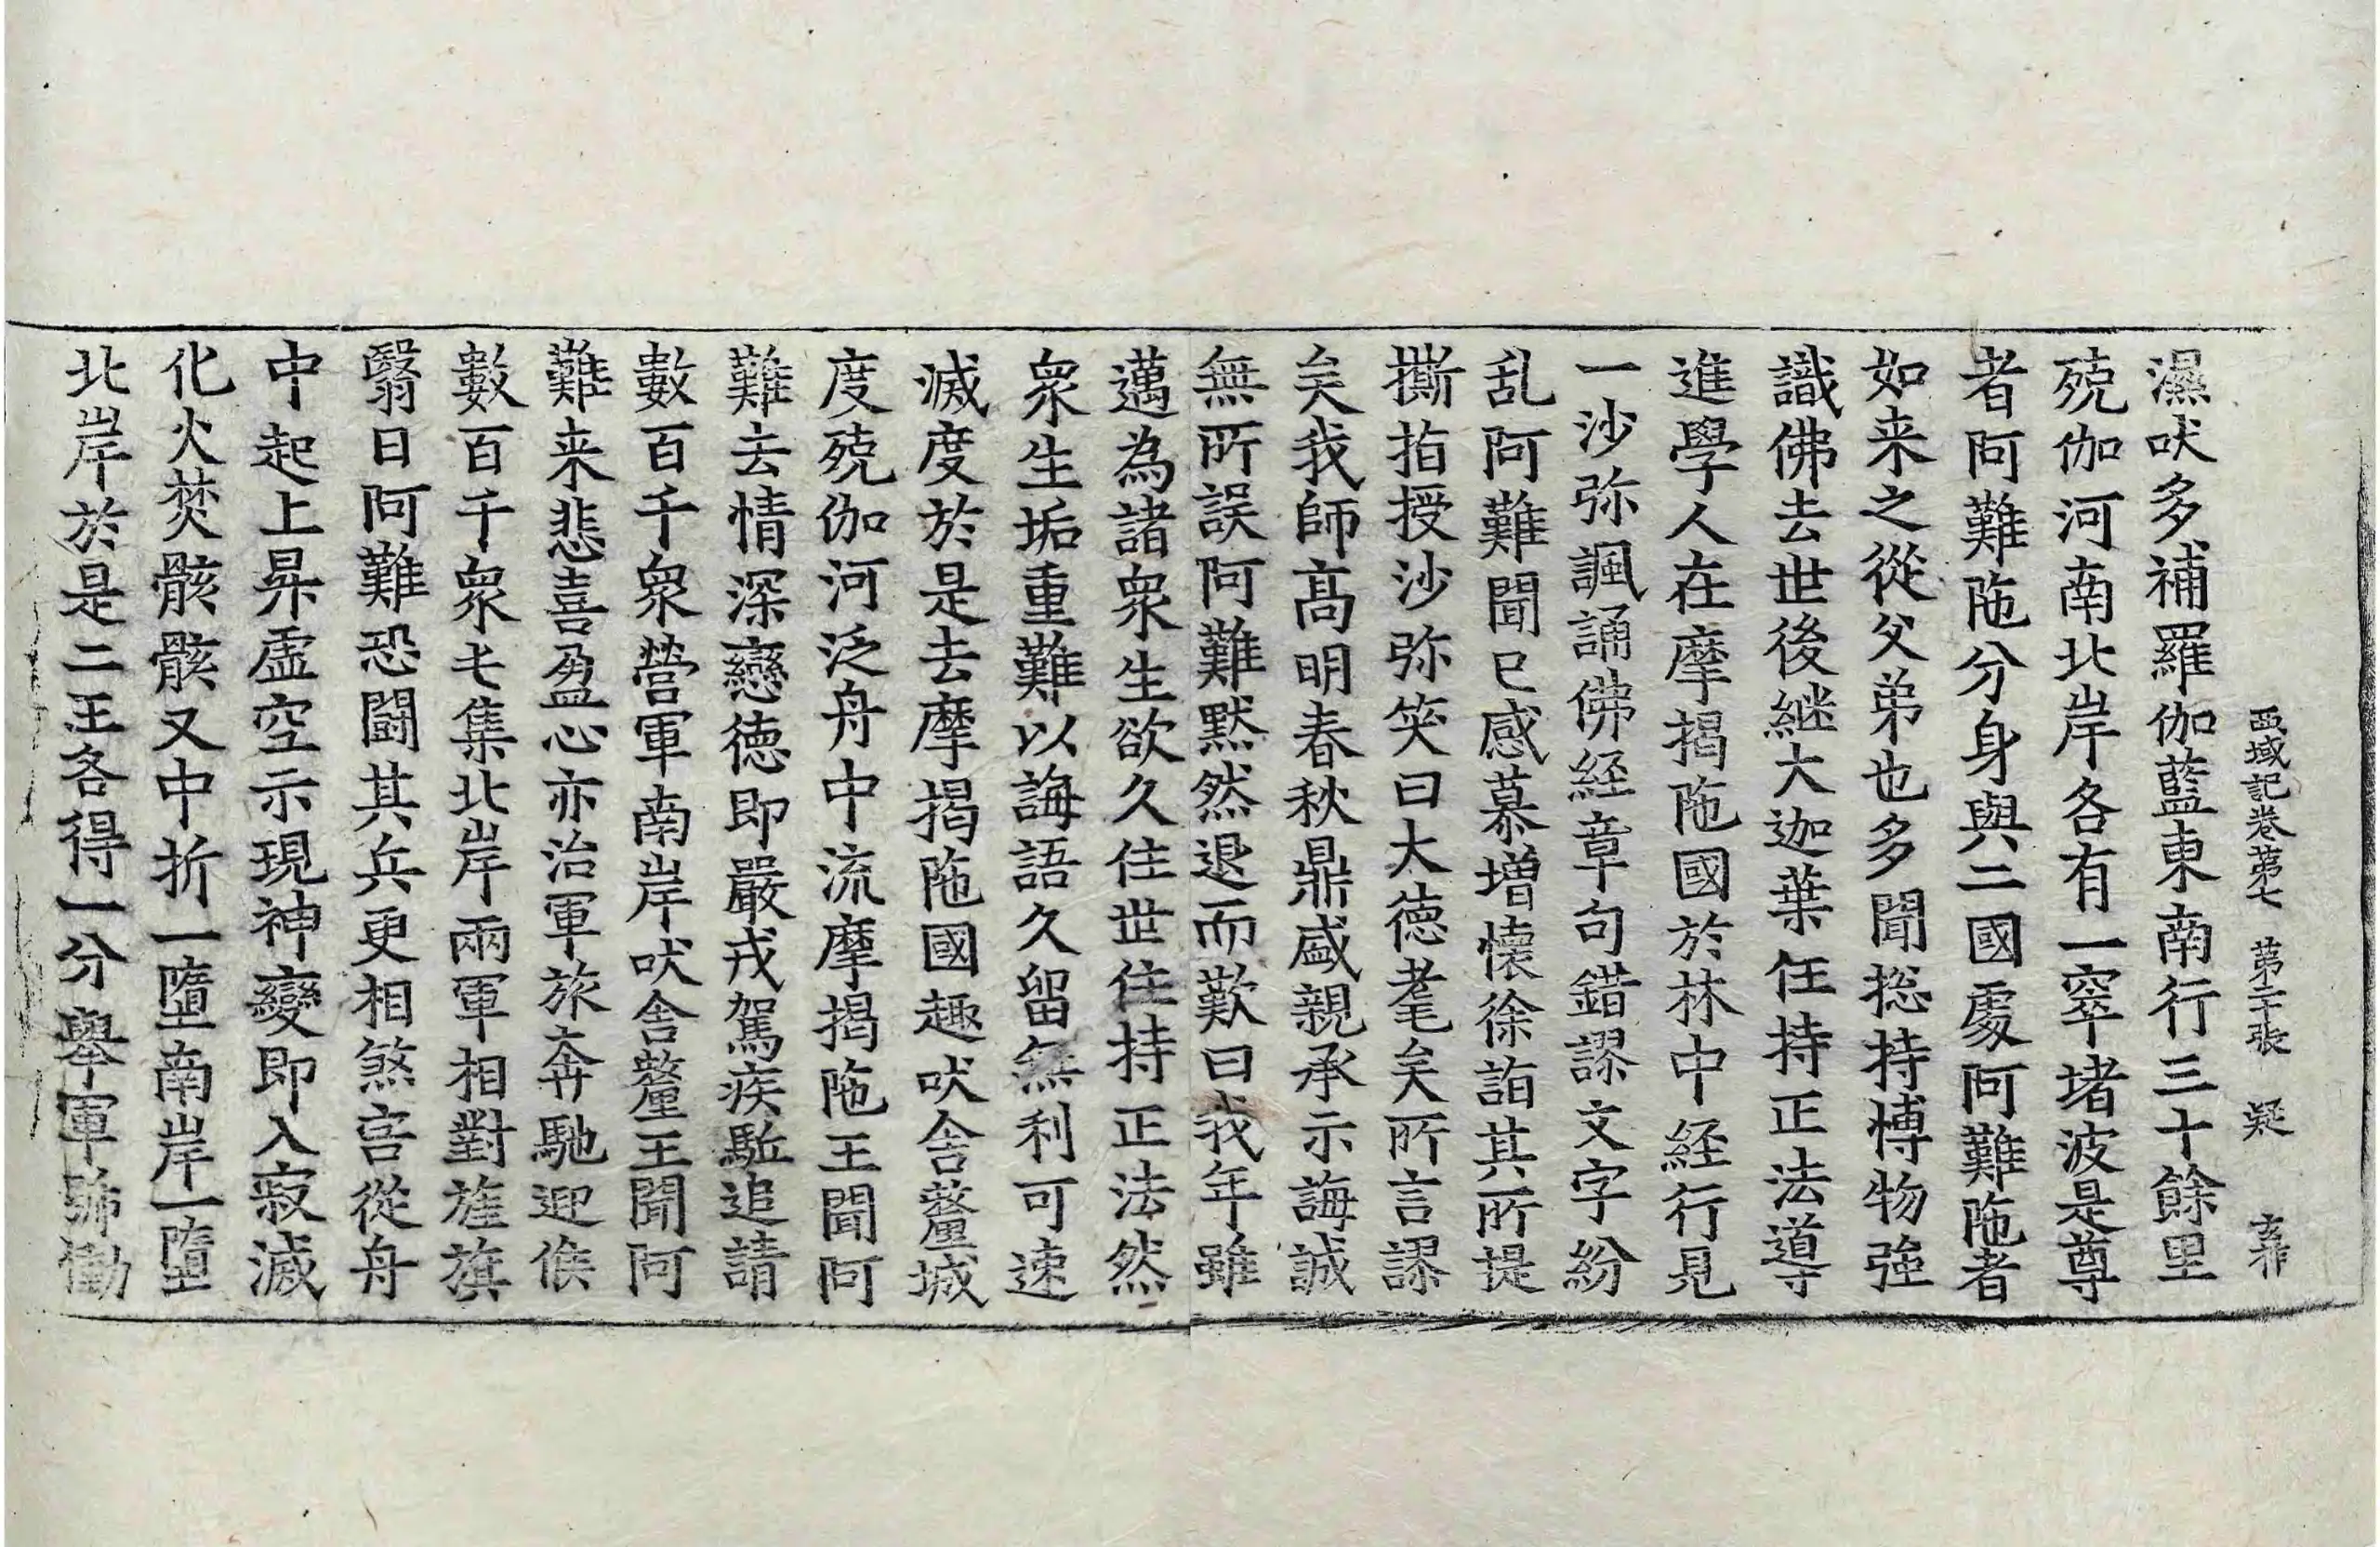 西域記卷苐七 苐二十張 疑
濕吠多補羅伽藍東南行三十餘里
殑伽河南北岸各有一窣堵波是尊
者阿難陁分身與二國處阿難陁者
如来之從父弟也多聞捴持博物強
識佛去世後継大迦葉任持正法導
進學人在摩揭陁國於林中經行見
一沙弥諷誦佛經章句錯謬文字紛
乱阿難聞已感慕增懷徐詣其所提
撕指授沙弥笑曰大德耄矣所言謬
矣我師高明春秋鼎盛親承示誨誠
無所誤阿難默然退而歎曰我年雖
邁為諸衆生欲久住世住持正法然
衆生垢重難以誨語久留無利可速
滅度於是去摩揭陁國趣吠舍釐城
度殑伽河泛舟中流摩揭陁王聞阿
難去情深戀德即嚴戎駕疾駈追請
數百千衆營軍南岸吠舍釐王聞阿
難来悲喜盈心亦治軍旅奔馳迎候
數百千衆屯集北岸兩軍相對旌旗
翳日阿難恐鬪其兵更相煞害從舟
中起上昇虛空示現神變即入寂滅
化火焚骸骸又中折一墮南岸一墮
北岸於是二王各得一分舉軍號慟